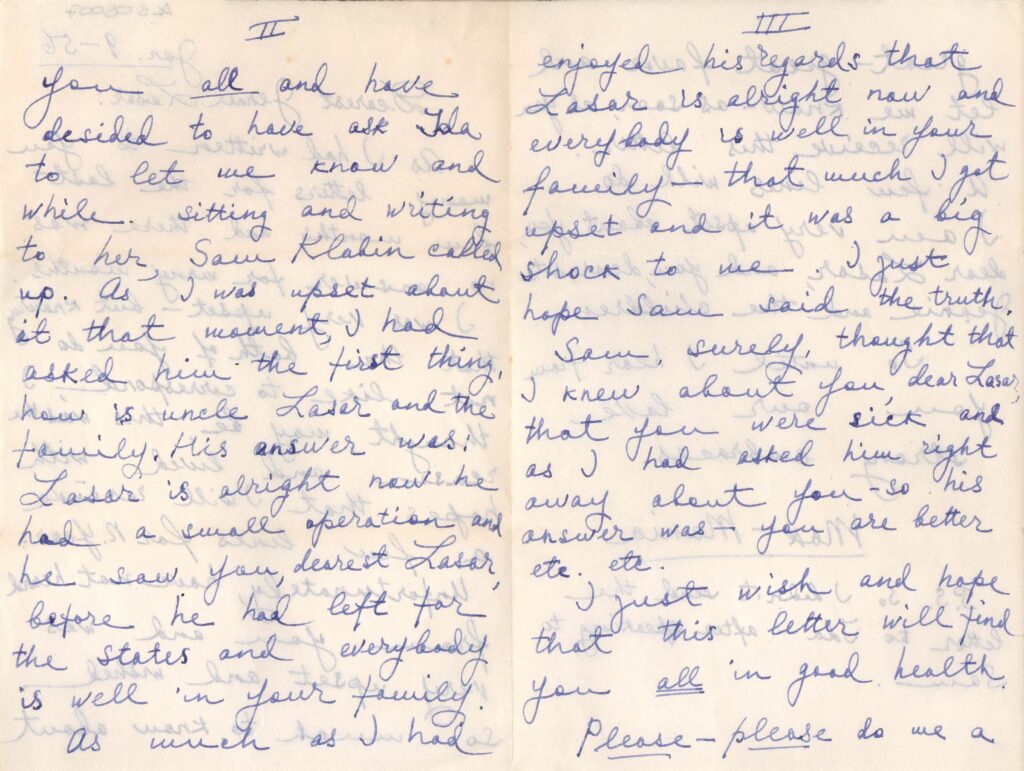 II
you all and have
decided to have ask Ida
to let me know and
while. sitting and writing
to her, Sam Klabin called
up. As I was upset about
it that moment, I had
asked him the first thing,
how is uncle Lasar and the
family. His answer was:
Lasar is alright now he
had a small operation and
he saw you, dearest Lasar,
before he had left for
the States and everybody
is well in your family.
As much as I had
III
enjoyed his regards that
Lasar is alright now and
everybody is well in your
family - that much I got
upset and it was a big
shock to me. I just
hope Sam said the truth.
Sam, surely, thought that
I knew about you, dear Lasar,
that you were sick and
as I had asked him right
away about you - so his
answer was - you are better
etc. etc.
I just wish and hope
that this letter will find
you all in good health.
Please - please do me a